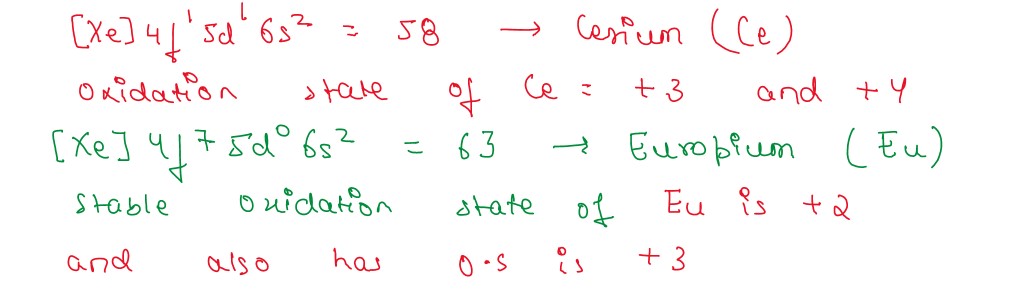 [Xe] 4f¹ 5d¹ 6s² = 58 → Cerium (Ce)
oxidation state of Ce = +3 and +4
[Xe] 4f⁷ 5d⁰ 6s² = 63 → Europium (Eu)
stable oxidation state of Eu is +2
and also has o.s is +3